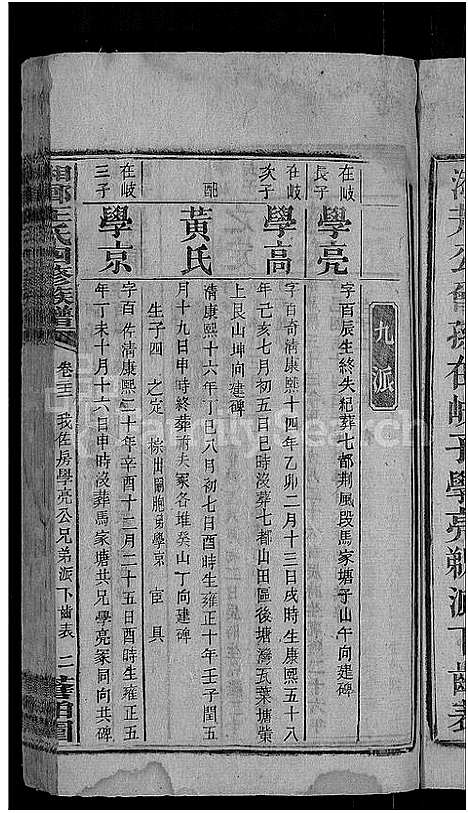 派下齒表
九派
在岐
長子
學亮
字百辰生終失紀葬七都荆風段馬家塘子山午向建碑
在岐
次子
學高
字百奇清康熙十四年乙卯二月十三日戌時生康熙五十八
年己亥七月初五日巳時沒葬七都山田區後塘灣瓦葉塘塋
上艮山坤向建碑
配
黃氏
清康熙十六年丁巳八月初七日酉時生雍正十年壬子閏五
月十九日申時終葬癸山丁向建碑
生子四 之定 學京
在岐
三子
學京
字百清康熙二十年辛酉十二月二十五日酉時生雍正五
年丁未十月十六日申時沒葬馬家塘共兄學亮冢同向共碑
湘鄉王氏四修族譜
卷三 房學亮公兄弟派下齒表 二
FamilySearch